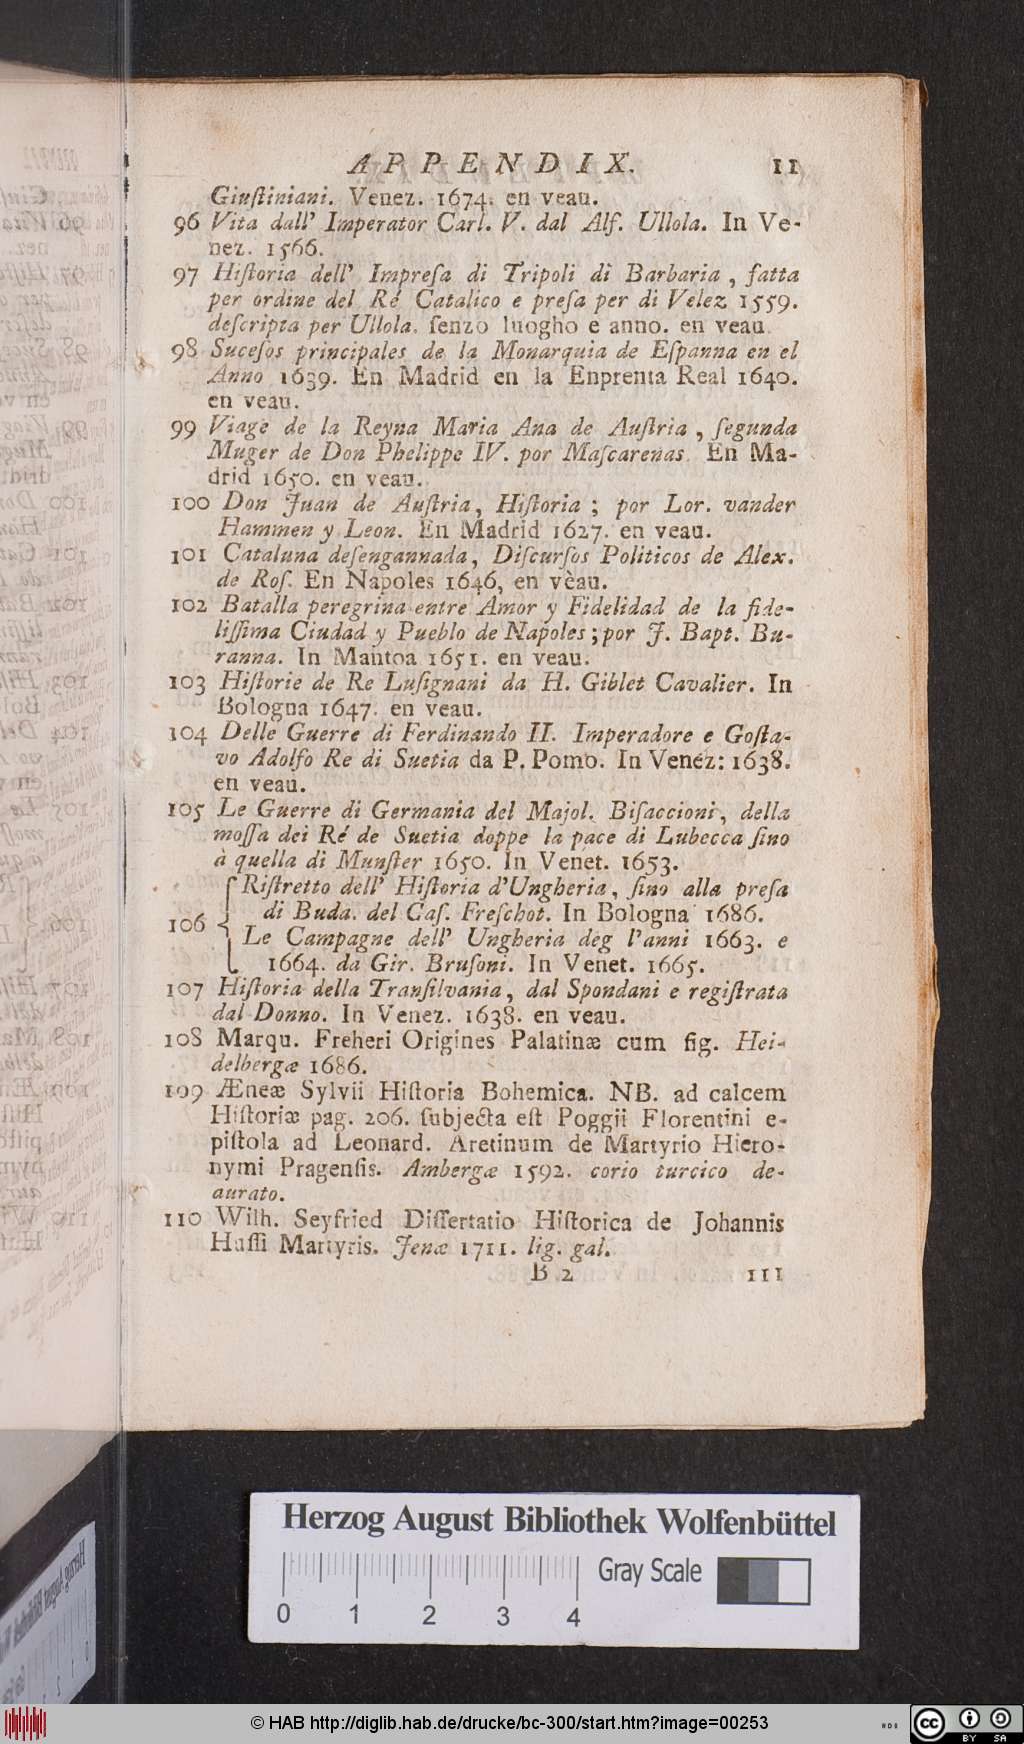 APPENDIX. 11
Giuſtiniani. Venez. 1674. en veau.
96 Vita dall' Imperator Carl. V. dal Alf. Ullola. In Ve-
nez. 1566.
97 Hiſtoria dell' Impreſa di Tripoli di Barbaria, fatta
per ordine del Ré Catalico e preſa per di Velez 1559.
deſcripta per Ullola. ſenzo luogho e anno. en veau.
98 Suceſos principales de la Monarquia de Eſpanna en el
Anno 1639. En Madrid en la Enprenta Real 1640.
en veau.
99 Viage de la Reyna Maria Ana de Auſtria, ſegunda
Muger de Don Phelippe IV. por Maſcarenas. En Ma-
drid 1650. en veau.
100 Don Juan de Auſtria, Hiſtoria; por Lor. vander
Hammen y Leon. En Madrid 1627. en veau.
101 Cataluna deſengannada, Diſcurſos Politicos de Alex.
de Roſ. En Napoles 1646, en vèau.
102 Batalla peregrina entre Amor y Fidelidad de la fide-
liſſima Ciudad y Pueblo de Napoles; por J. Bapt. Bu-
ranna. In Mantoa 1651. en veau.
103 Hiſtorie de Re Luſignani da H. Giblet Cavalier. In
Bologna 1647. en veau.
104 Delle Guerre di Ferdinando II. Imperadore e Goſta-
vo Adolfo Re di Suetia da P. Pomo. In Venéz: 1638.
en veau.
105 Le Guerre di Germania del Majol. Biſaccioni, della
moſſa dei Ré de Suetia doppe la pace di Lubecca ſino
à quella di Munſter 1650. In Venet. 1653.
Riſtretto dell' Hiſtoria d'Ungheria, ſino alla preſa
di Buda. del Caſ. Freſchot. In Bologna 1686.
106
Le Campagne dell' Ungheria deg l'anni 1663. e
1664. da Gir. Bruſoni. In Venet. 1665.
107 Hiſtoria della Tranſilvania, dal Spondani e regiſtrata
dal Donno. In Venez. 1638. en veau.
108 Marqu. Freheri Origines Palatinæ cum fig. Hei-
delbergæ 1686.
109 Æneæ Sylvii Hiſtoria Bohemica. NB. ad calcem
Hiſtoriæ pag. 206. ſubjecta eſt Poggii Florentini e-
piſtola ad Leonard. Aretinum de Martyrio Hiero-
nymi Pragenſis. Ambergæ 1592. corio turcico de-
aurato.
110 Wilh. Seyfried Diſſertatio Hiſtorica de Johannis
Huſſi Martyris. Jenæ 1711. lig. gal.
B 2 111
Herzog August Bibliothek Wolfenbüttel
Gray Scale
0 1 2 3 4
© HAB http://diglib.hab.de/drucke/bc-300/start.htm?image=00253
cc BY SA